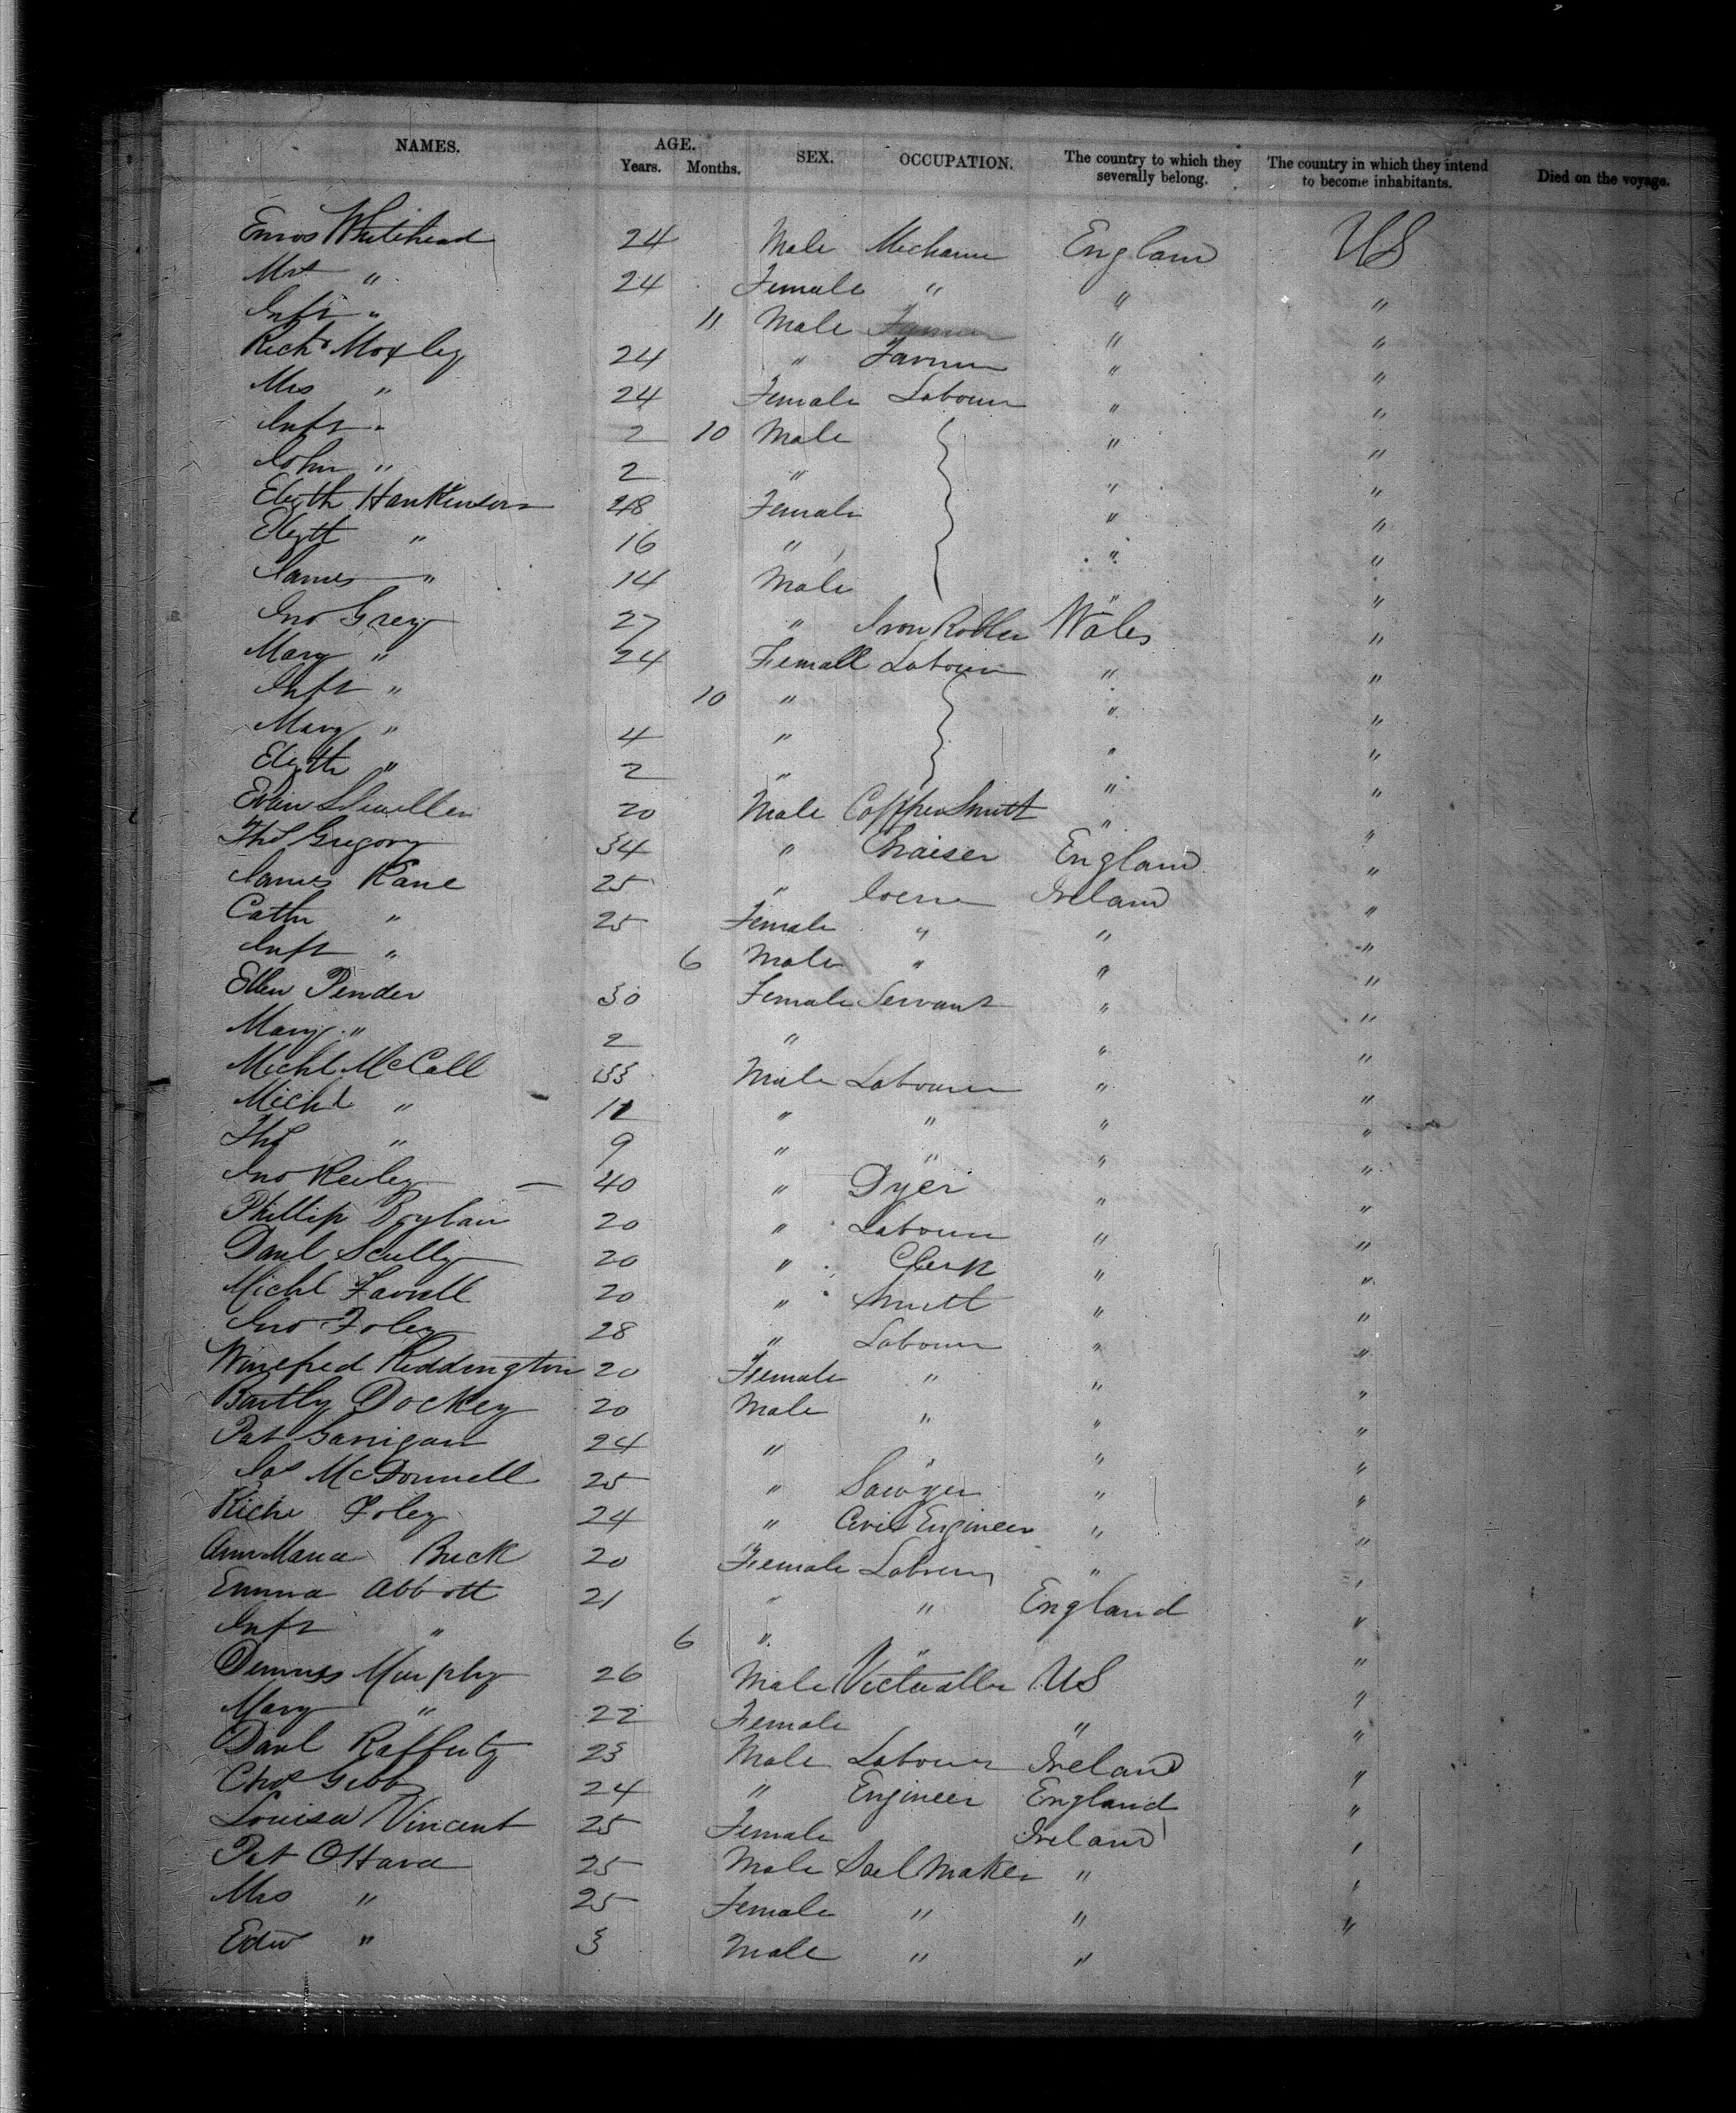 NAMES. AGE. Years. Months. SEX. OCCUPATION. The country to which they severally belong. The country in which they intend to become inhabitants. Died on the voyage.
Enos Whitehead 24 Male Mechanic England US
Mrs " 24 Female " " "
Inft " 11 Male " "
Richd Moxley 24 " Farmer " "
Mrs " 24 Female Labourer " "
Inft " 2 10 Male " "
John " 2 " " "
Elizth Hankinson 48 Female " "
Elizth " 16 " " "
James " 14 Male " "
Jno Grey 27 " Iron Roller Wales "
Mary " 24 Female Labourer " "
Inft " 10 " " "
Mary " 4 " " "
Elizth " 2 " " "
Evan Llewellen 20 Male Coppersmith " "
Thos Gregory 34 " Chaiser England "
James Kane 25 " Ireland "
Cathn " 25 Female " " "
Inft " 6 Male " " "
Ellen Pender 30 Female Servant " "
Mary " 2 " " "
Michl McCall 33 Male Labourer " "
Michl " 11 " " " "
Thos " 9 " " " "
Jno Reiley 40 " Dyer " "
Phillip Boylan 20 " Labourer " "
Danl Scully 20 " Clerk " "
Michl Farrell 20 " Smith " "
Jno Foley 28 " Labourer " "
Winefred Reddington 20 Female " " "
Bartly Dockey 20 Male " " "
Pat Garrigan 24 " " " "
Jas McDonnell 25 " Sawyer " "
Richd Foley 24 " Civil Engineer " "
Ann Maria Buck 20 Female Labourer " "
Emma Abbott 21 " " England "
Inft " 6 " " "
Dennis Murphy 26 Male Victualler US "
Mary " 22 Female " "
Danl Rafferty 23 Male Labourer Ireland "
Chas Gibb 24 " Engineer England "
Louisa Vincent 25 Female Ireland "
Pat OHara 25 Male Sail Maker " "
Mrs " 25 Female " " "
Edw " 3 Male " "